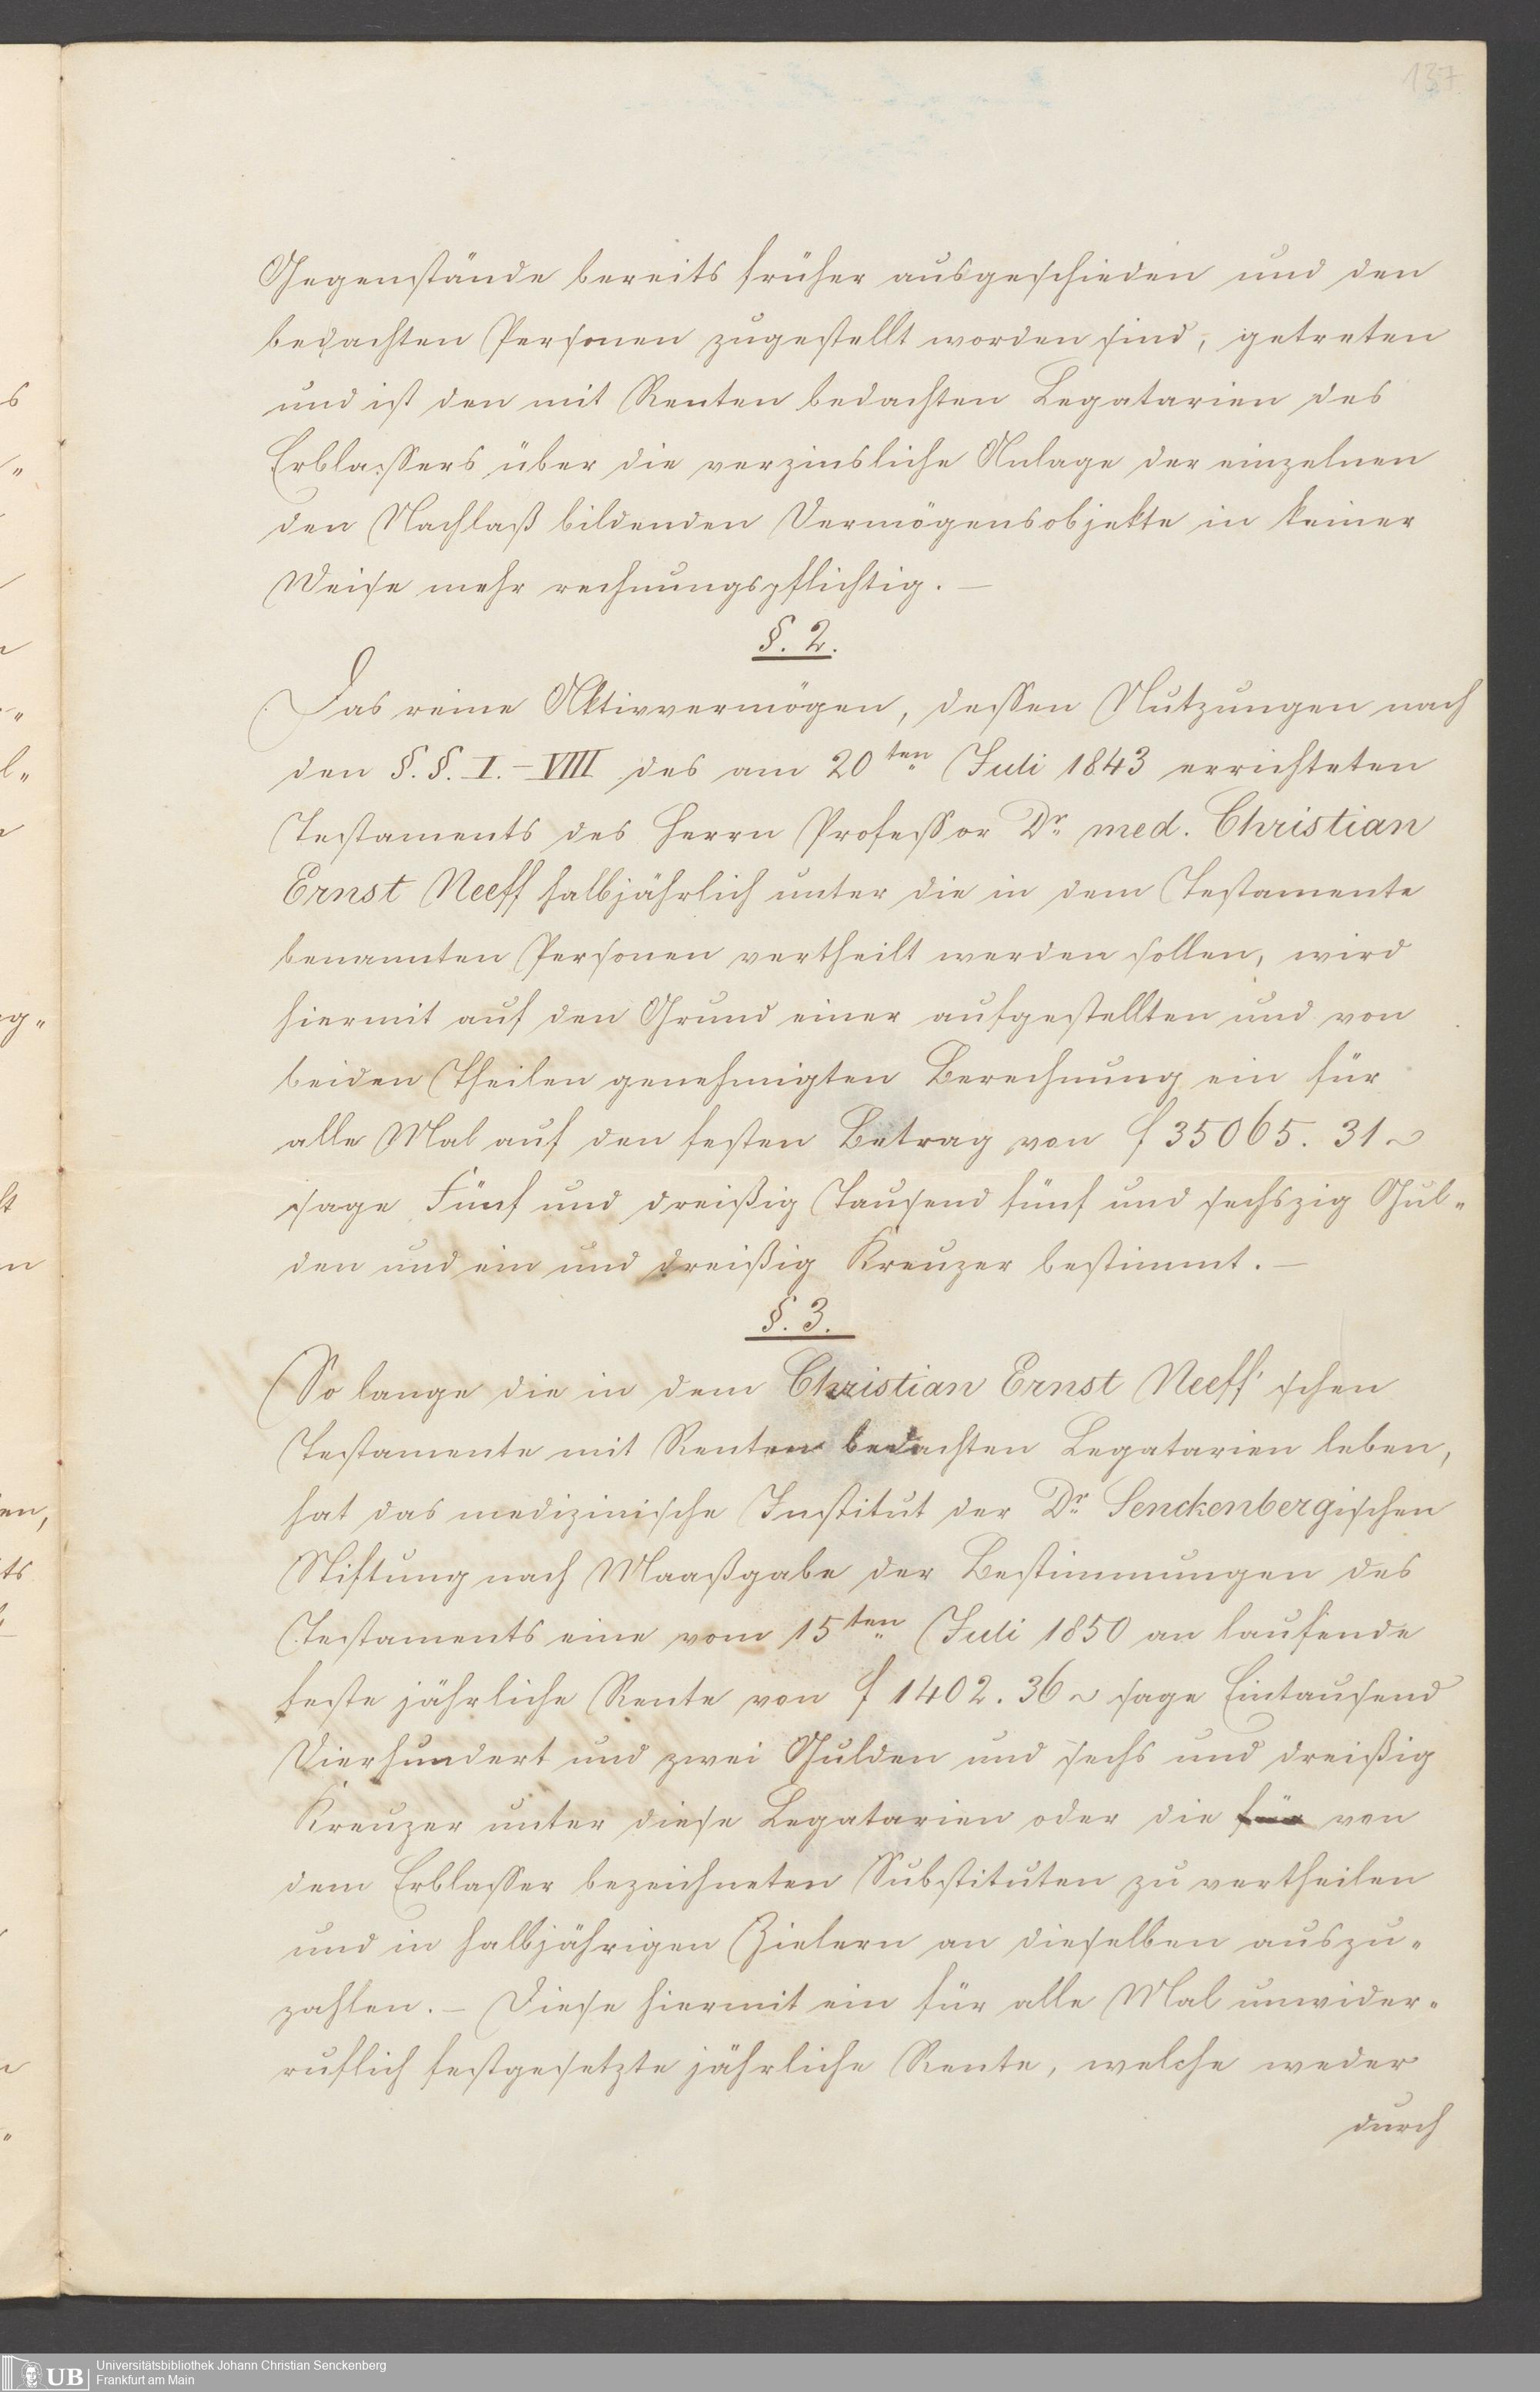 137
Gegenstände bereits früher ausgeschieden und den
bedachten Personen zugestellt worden sind, getreten
und ist den mit Renten bedachten Legatarien des
Erblassers über die verzinsliche Anlage der einzelnen
den Nachlaß bildenden Vermögensobjekte in keiner
Weise mehr rechnungspflichtig. —
§. 2.
Das reine Aktivvermögen, dessen Nutzungen nach
den §. §. I. – VIII des am 20ten Juli 1843 errichteten
Testaments des Herrn Professor Dr. med. Christian
Ernst Neeff halbjährlich unter die in dem Testamente
benannten Personen vertheilt werden sollen, wird
hiermit auf den Grund einer aufgestellten und von
beiden Theilen genehmigten Berechnung ein für
alle Mal auf den festen Betrag von f 35065. 31 ~
sage Fünf und dreißig Tausend fünf und sechszig Gul-
den und ein und dreißig Kreuzer bestimmt. —
§. 3.
So lange die in dem Christian Ernst Neeff'schen
Testamente mit Renten bedachten Legatarien leben,
hat das medizinische Institut der Dr. Senckenbergischen
Stiftung nach Maaßgabe der Bestimmungen des
Testaments eine vom 15ten Juli 1850 an laufende
feste jährliche Rente von f 1402. 36 ~ sage Eintausend
Vierhundert und zwei Gulden und sechs und dreißig
Kreuzer unter diese Legatarien oder die für von
dem Erblasser bezeichneten Substituten zu vertheilen
und in halbjährigen Zielern an dieselben auszu-
zahlen. – Diese hiermit ein für alle Mal unwider-
ruflich festgesetzte jährliche Rente, welche weder
durch
UB
Universitätsbibliothek Johann Christian Senckenberg
Frankfurt am Main